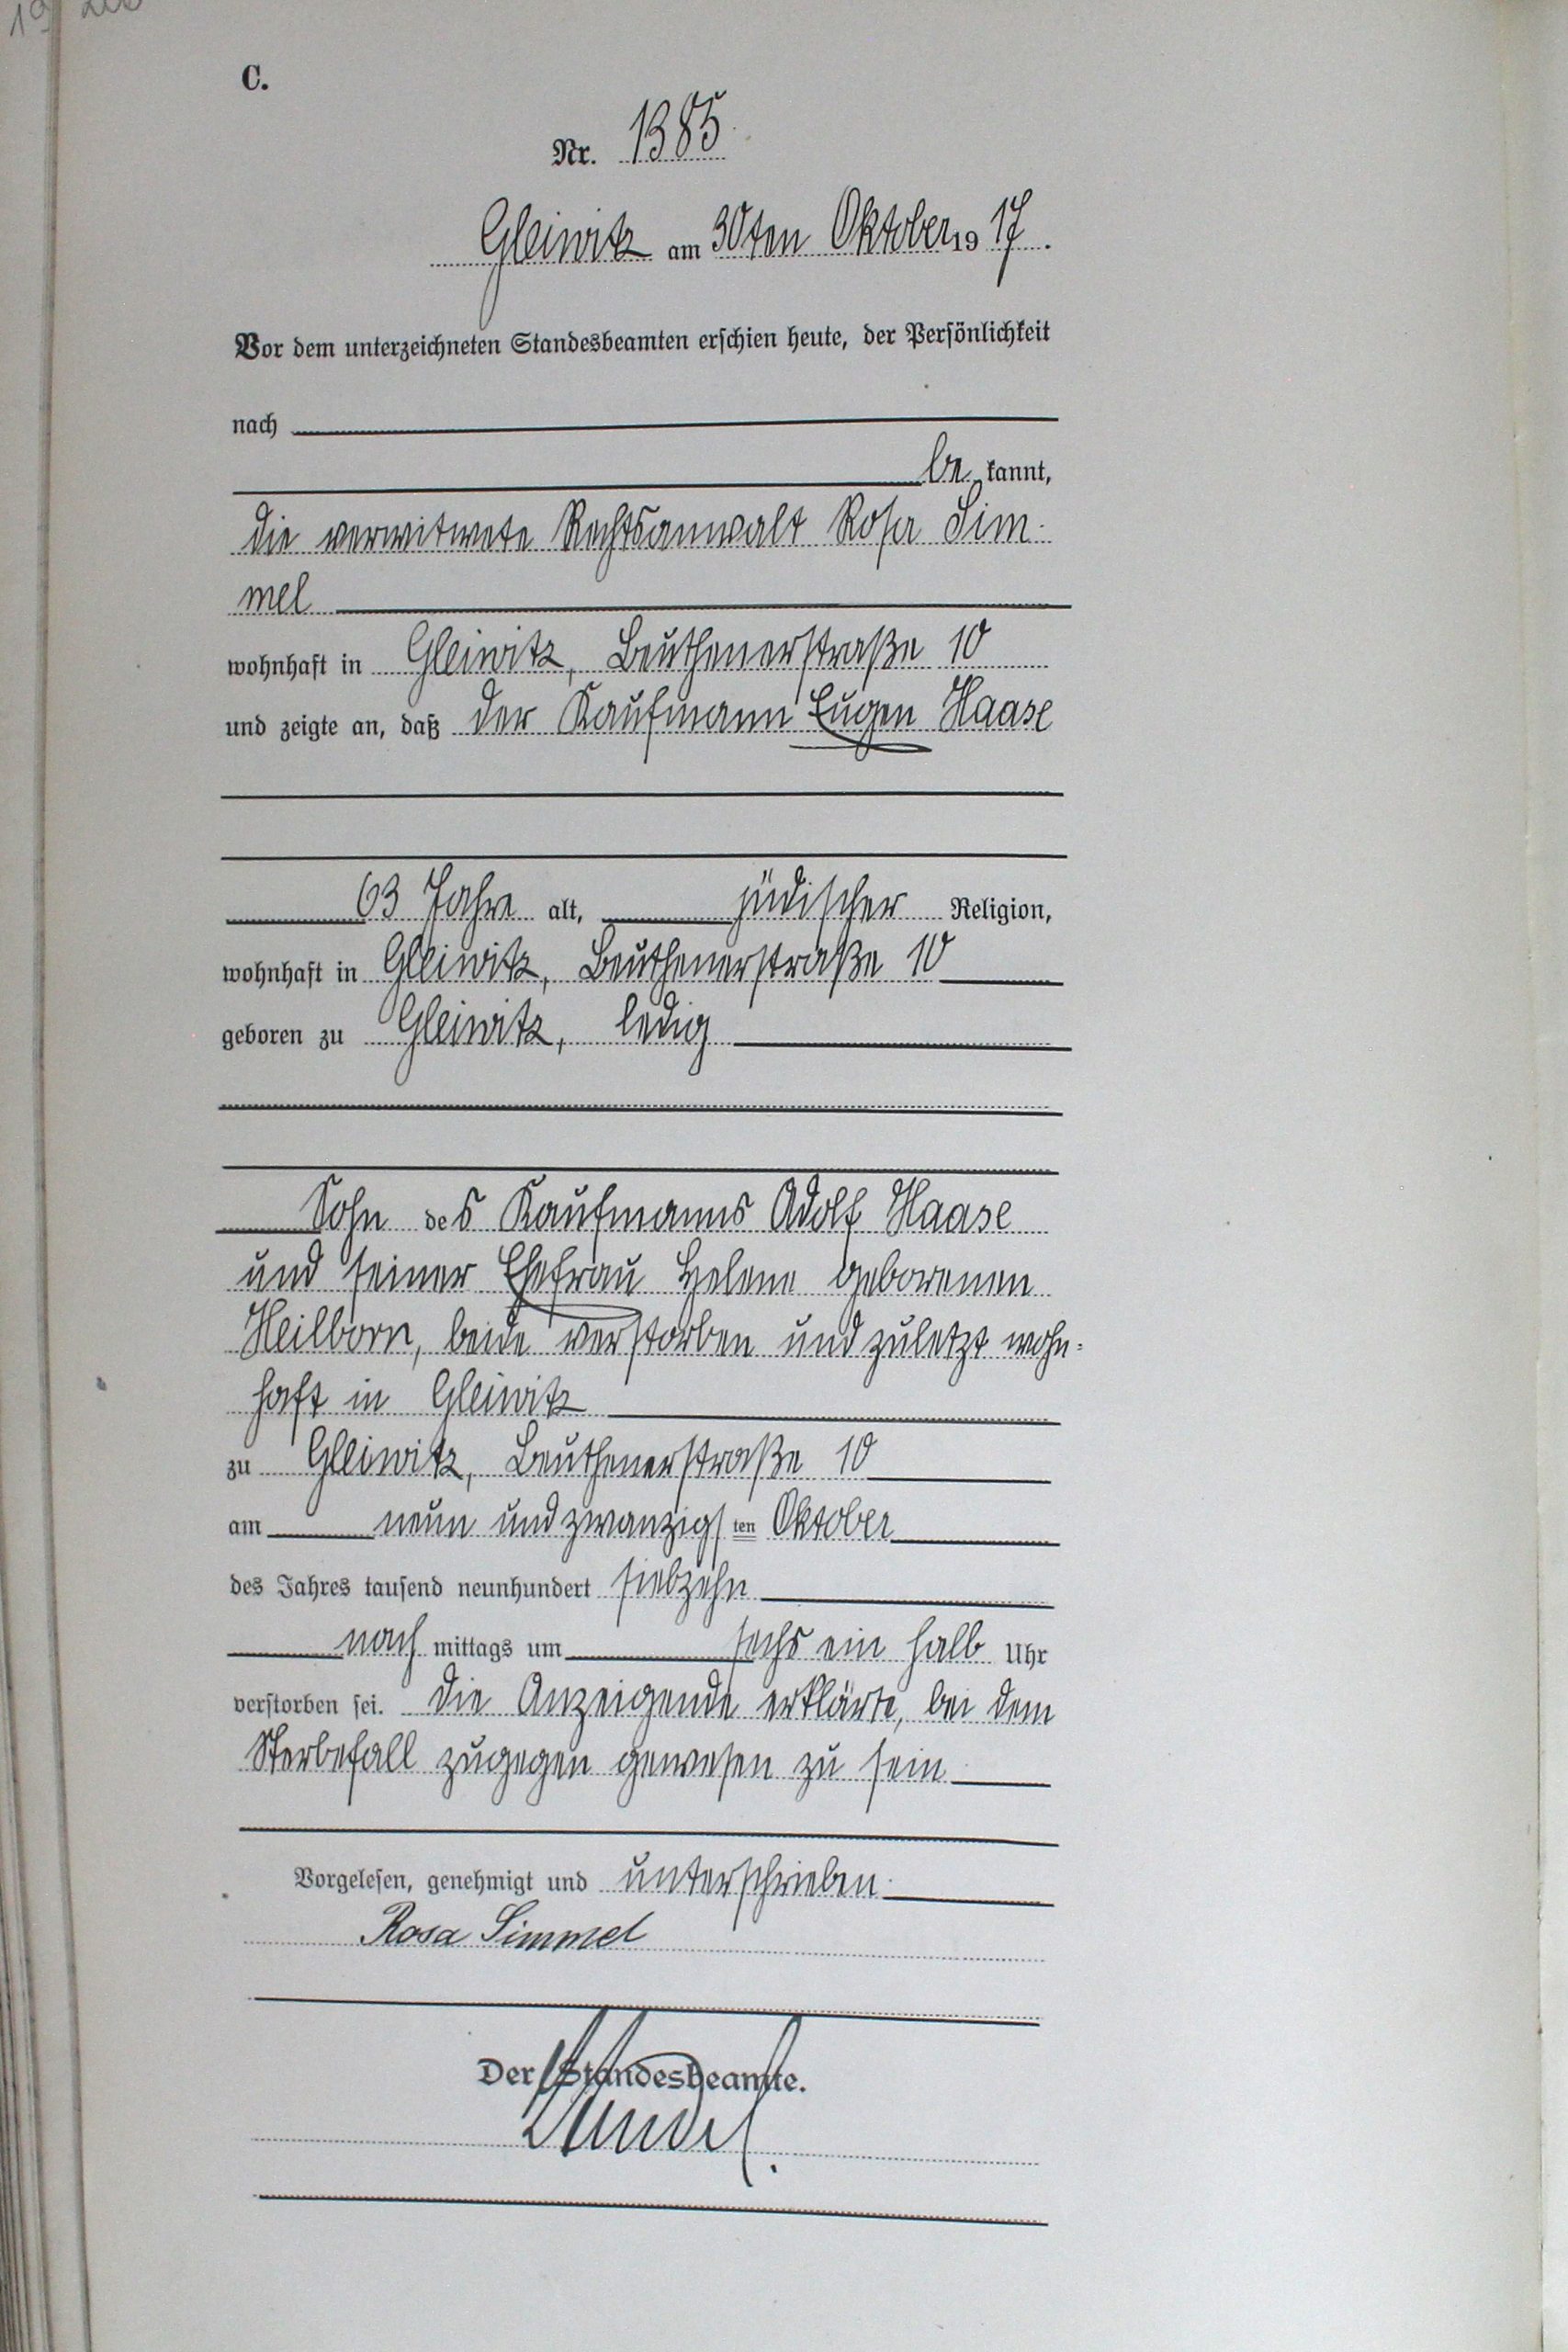 C.
Nr. 1385
Gleiwitz am 30ten Oktober 1917.
Vor dem unterzeichneten Standesbeamten erschien heute, der Persönlichkeit
nach
be kannt,
die verwitwete Rechtsanwalt Rosa Sim-
mel
wohnhaft in Gleiwitz, Beuthenerstraße 10
und zeigte an, daß der Kaufmann Eugen Haase
63 Jahre alt, jüdischer Religion,
wohnhaft in Gleiwitz, Beuthenerstraße 10
geboren zu Gleiwitz, ledig
Sohn des Kaufmanns Adolf Haase
und seiner Ehefrau Helene geborenen
Heilborn, beide verstorben und zuletzt wohn-
haft in Gleiwitz
zu Gleiwitz, Beuthenerstraße 10
am neun und zwanzigsten Oktober
des Jahres tausend neunhundert siebzehn
nach mittags um sechs ein halb Uhr
verstorben sei. Die Anzeigende erklärte, bei dem
Sterbefall zugegen gewesen zu sein
Vorgelesen, genehmigt und unterschrieben
Rosa Simmel
Der Standesbeamte.